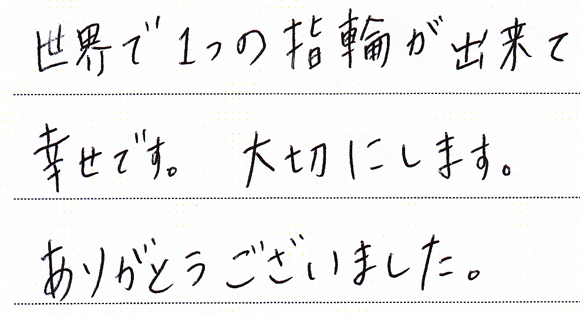 世界で1つの指輪が出来て
幸せです。 大切にします。
ありがとうございました。